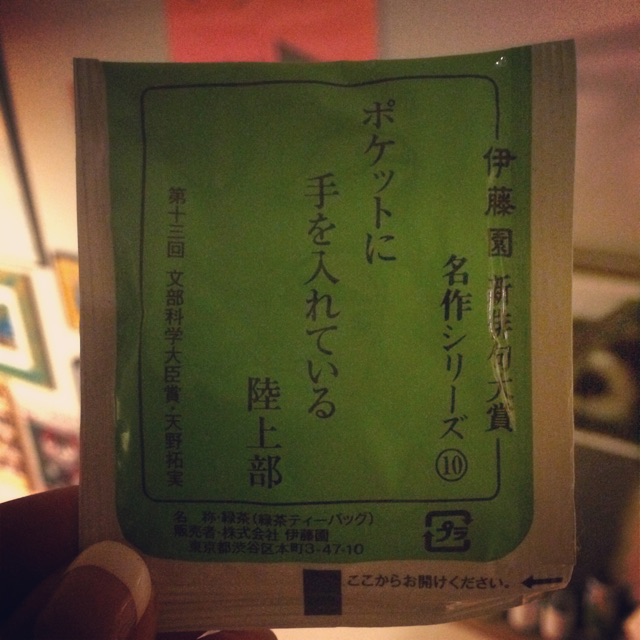 伊藤園 新俳句大賞
名作シリーズ⑩
ポケットに
手を入れている
陸上部
第十三回 文部科学大臣賞・天野拓実
名 称・緑茶(緑茶ティーバッグ)
販売者・株式会社 伊藤園
東京都渋谷区本町3-47-10
プラ
ここからお開けください。